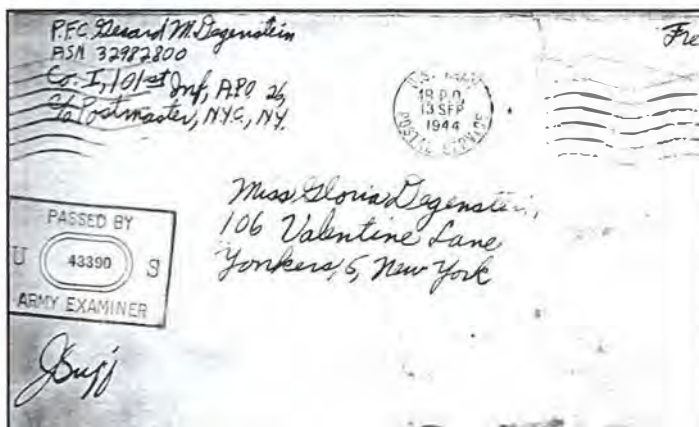 P.F.C. Gerard M. Degenstein
ASN 32982800
Co. I, 101st Inf, APO 26,
c/o Postmaster, N.Y.C., N.Y.
Fre
U.S. ARMY
13 SEP
1944
POSTAL SERVICE
Miss Gloria Degenstein,
106 Valentine Lane
Yonkers, 5, New York
PASSED BY
U 43390 S
ARMY EXAMINER